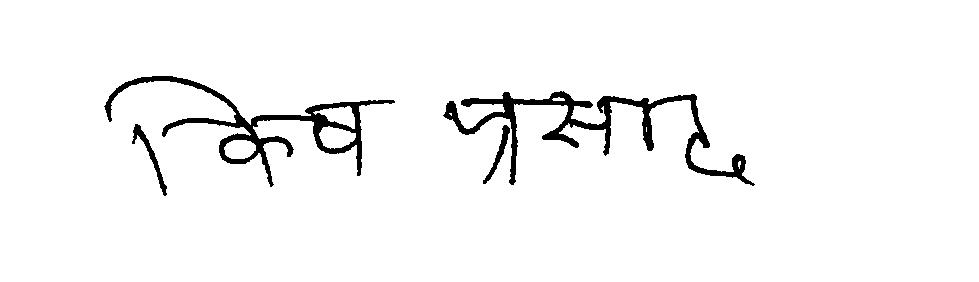 किव प्रसाद